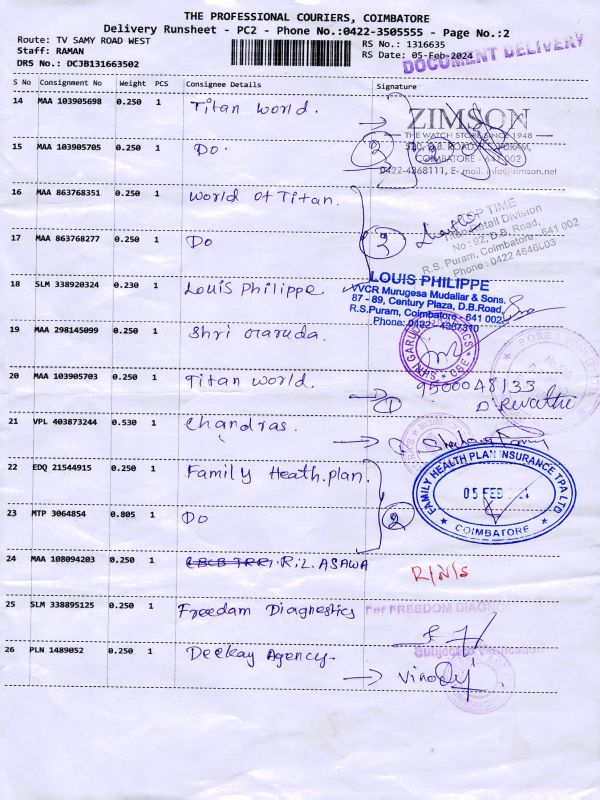 THE PROFESSIONAL COURIERS, COIMBATORE
Delivery Runsheet - PC2 - Phone No.:0422-3505555 - Page No.:2
Route: TV SAMY ROAD WEST
Staff: RAMAN
DRS No.: DCJB131663502
RS No.: 1316635
RS Date: 05-Feb-2024
DOCUMENT DELIVERY
S No Consignment No Weight PCS Consignee Details Signature
14 MAA 103905698 0.250 1 Titan world.
ZIMSON
THE WATCH STORE SINCE 1948
COIMBATORE - 641 002
0422-4368111, E-mail: info@zimson.net
15 MAA 103905705 0.250 1 Do.
16 MAA 863768351 0.250 1 World of Titan.
17 MAA 863768277 0.250 1 Do
Retail Division
No : 92, D.B. Road,
R.S. Puram, Coimbatore - 641 002
Phone : 0422 4646603
18 SLM 338920324 0.230 1 Louis Philippe
LOUIS PHILIPPE
VVCR Murugesa Mudaliar & Sons.
87 - 89, Century Plaza, D.B.Road,
R.S.Puram, Coimbatore - 641 002.
Phone: 0422 - 4387310
19 MAA 298145099 0.250 1 Shri Garuda.
20 MAA 103905703 0.250 1 Titan world.
1
9500048133
D. Revathi
21 VPL 403873244 0.530 1 Chandras.
22 EDQ 21544915 0.250 1 Family Heath.plan.
FAMILY HEALTH PLAN INSURANCE TPA LTD.
05 FEB
COIMBATORE
23 MTP 3064854 0.805 1 DO
2
24 MAA 108094203 0.250 1 R.L. ASAWA
R/N/S
25 SLM 338895125 0.250 1 Freedam Diagnestics
For FREEDOM DIAGN
Subject to Verification
26 PLN 1489052 0.250 1 Deekay Agency.